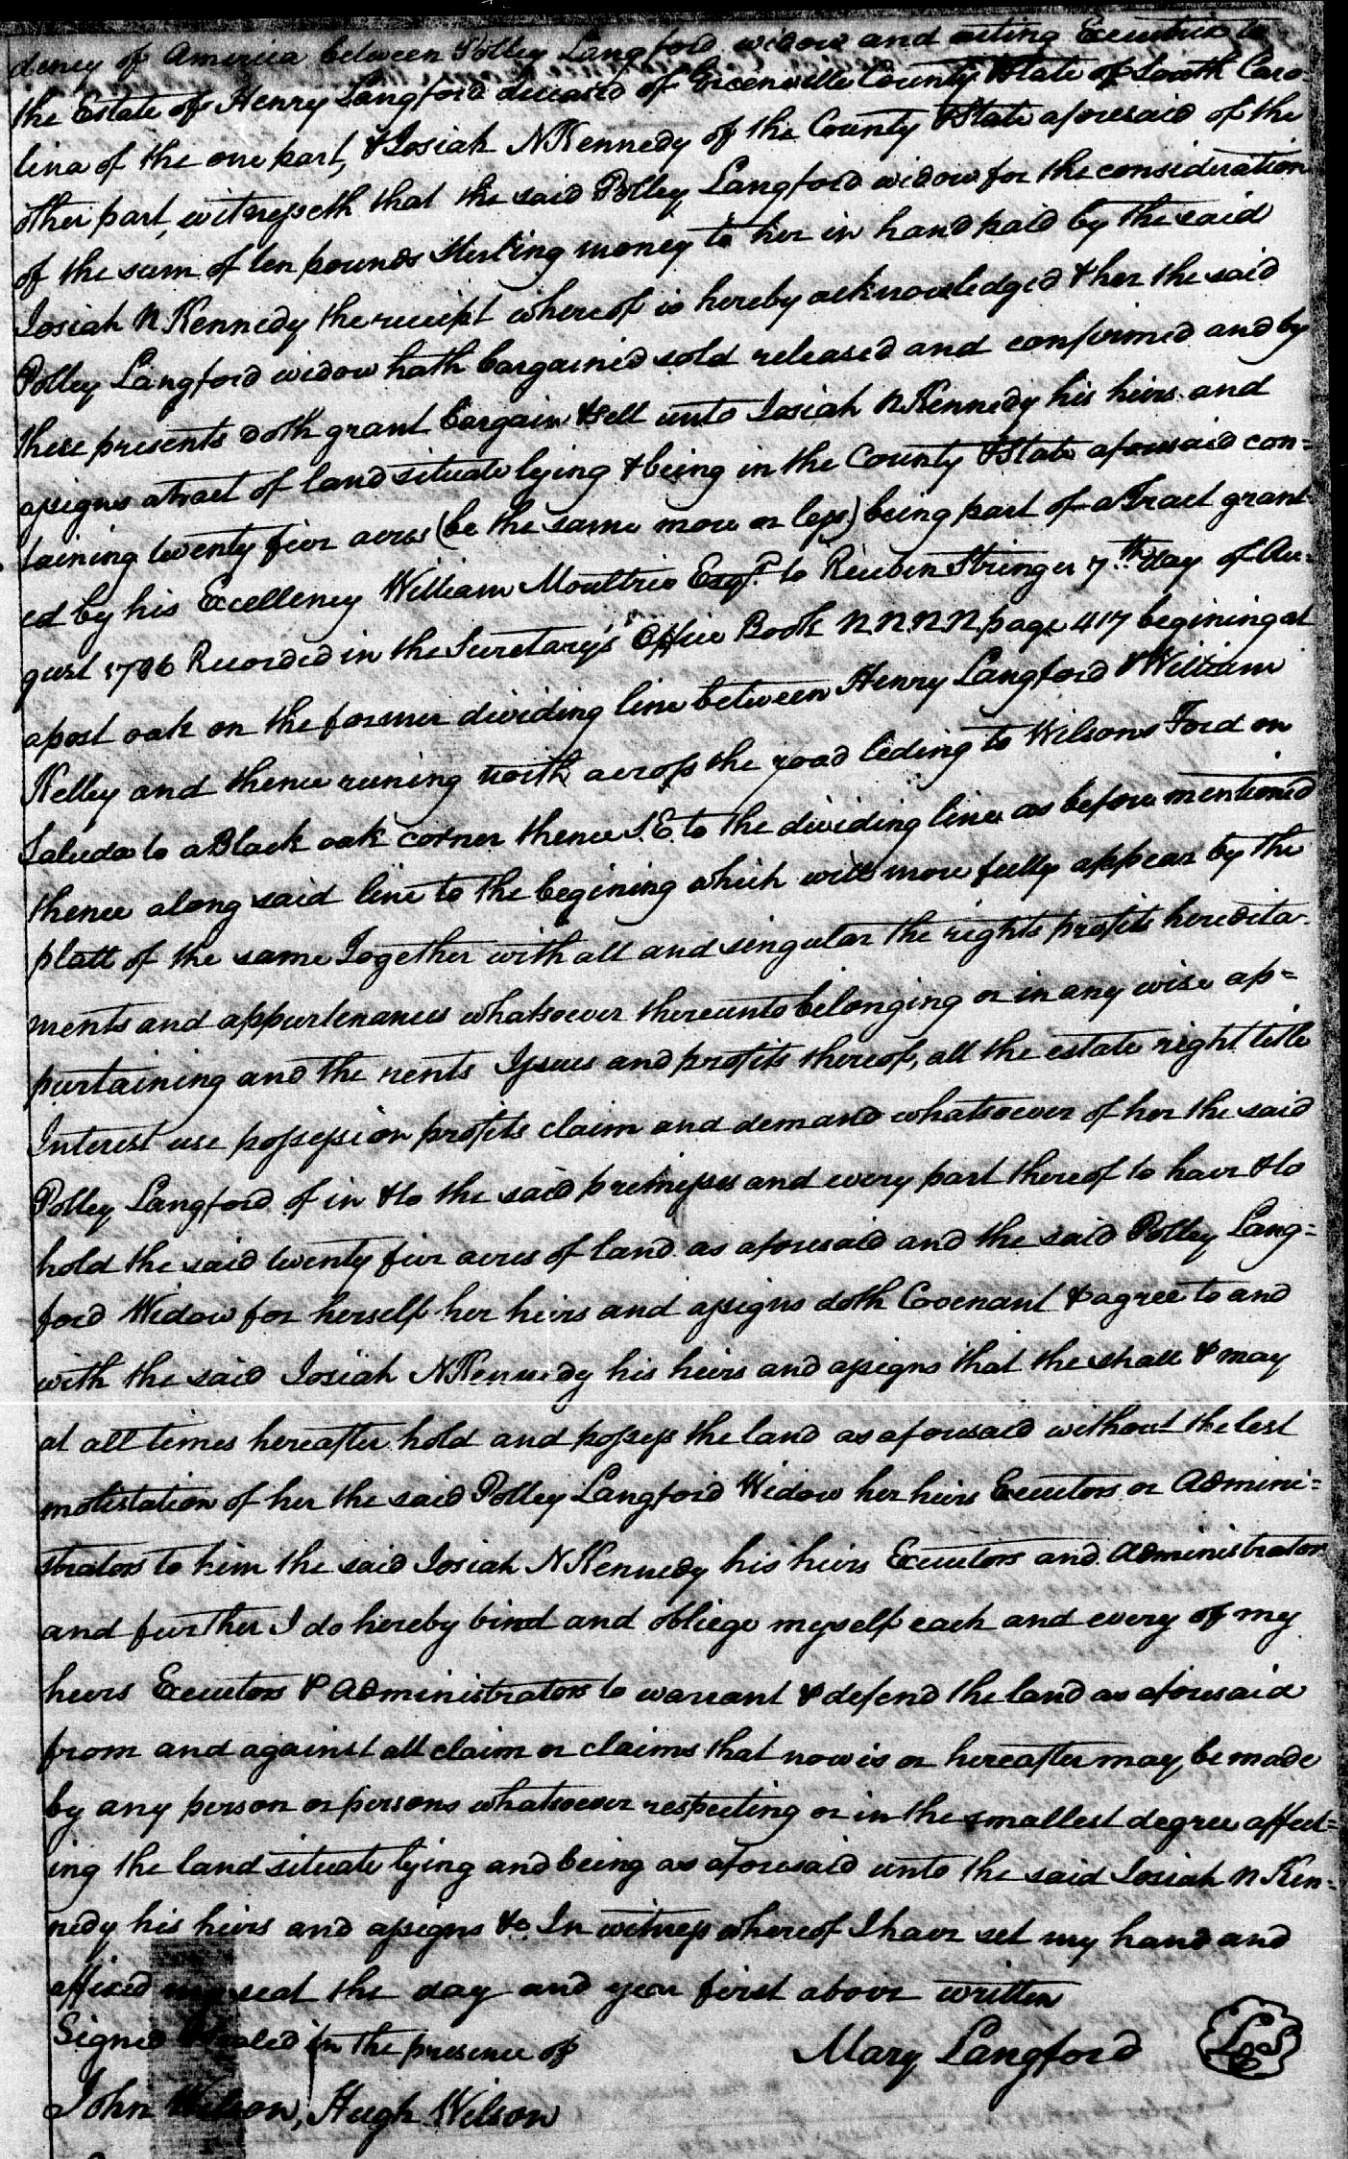 dency of America between Polley Langford widow and acting Executrix to
the Estate of Henry Langford deceased of Greenville County & State of South Caro-
lina of the one part, & Josiah N Kennedy of the County & State aforesaid of the
other part, witnesseth that the said Polley Langford widow for the consideration
of the sum of ten pounds Sterling money to her in hand paid by the said
Josiah N Kennedy the receipt whereof is hereby acknowledged & her the said
Polley Langford widow hath bargained sold released and confirmed and by
these presents doth grant bargain & sell unto Josiah N Kennedy his heirs and
assigns a tract of land situate lying & being in the County & State aforesaid con=
taining twenty five acres (be the same more or less) being part of a Tract grant-
ed by his Excellency William Moultrie Esqr. to Reuben Stringer 7th day of Au=
gust 1786 Recorded in the Secretary's Office Book N.N.N.N. page 417 begining at
a post oak on the former dividing line between Henry Langford & William
Kelley and thence runing north across the road leding to Wilsons Ford on
Saluda to a Black oak corner thence S.E. to the dividing line as before mentioned
thence along said line to the begining which will more fully appear by the
platt of the same Together with all and singular the rights profits heredita-
ments and appurtenances whatsoever thereunto belonging or in any wise ap=
purtaining and the rents Issues and profits thereof, all the estate right title
Interest use possession profits claim and demand whatsoever of her the said
Polley Langford of in & to the said premises and every part thereof to have & to
hold the said twenty five acres of land as aforesaid and the said Polley Lang=
ford Widow for herself her heirs and assigns doth Covenant & agree to and
with the said Josiah N Kennedy his heirs and assigns that the shall & may
at all times hereafter hold and possess the land as aforesaid without the lest
molistation of her the said Polley Langford Widow her heirs Executors or Admini=
strators to him the said Josiah N Kennedy his heirs Executors and Administrators
and further I do hereby bind and obliege myself each and every of my
heirs Executors & Administrators to warrant & defend the land as aforesaid
from and against all claim or claims that now is or hereafter may be made
by any person or persons whatsoever respecting or in the smallest degree affect=
ing the land situate lying and being as aforesaid unto the said Josiah N Ken=
nedy his heirs and assigns &c. In witness whereof I have set my hand and
affixed my seal the day and year first above written
Signed & Sealed in the presence of
Mary Langford LS
John Wilson, Hugh Wilson